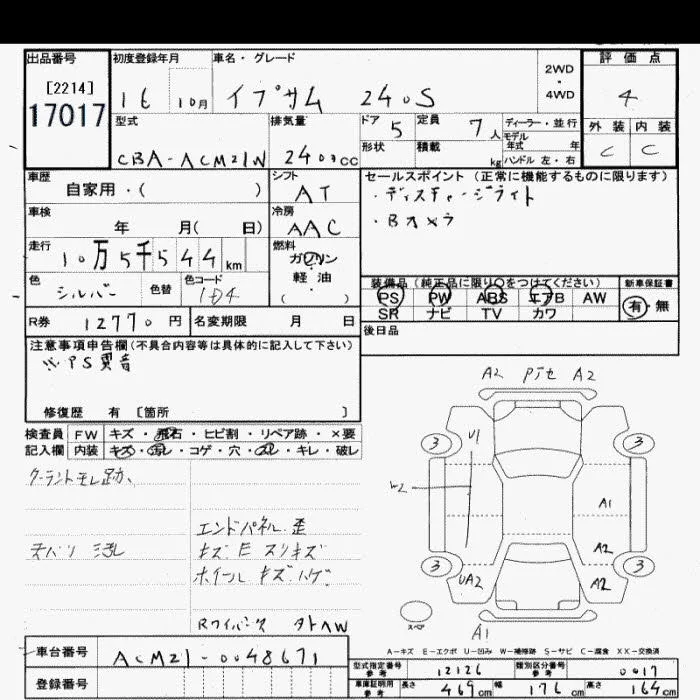 出品番号 初度登録年月 車名・グレード 2WD・4WD 評価点
[2214]
17017
16 10月 イプサム 240S 4
型式 排気量 ドア 5 定員 7人 ディーラー・並行 外装 内装
モデル年式 年
形状 積載 kg ハンドル 左・右 C C
CBA-ACM21W 2400cc
車歴 シフト セールスポイント(正常に機能するものに限ります)
自家用・( ) AT ・ディスチャージライト
車検 冷房 ・Bカメラ
年 月( 日) AAC
走行 燃料
10万5千544km ガソリン
軽・油
( )
色 シルバー 色替 色コード 1D4
装備品(純正品に限り○をつけてください) 新車保証書
PS PW ABS エアB AW 有・無
SR ナビ TV カワ
R券 12770円 名変期限 月 日 後日品
注意事項申告欄(不具合内容等は具体的に記入して下さい)
※PS異音
修復歴 有 [箇所 ]
検査員 FW キズ・飛石・ヒビ割・リペア跡・×要
記入欄 内装 キズ・汚れ・コゲ・穴・スレ・キレ・破レ
クーラントモレ跡、
エンドパネル歪
天バリ 汚れ キズE スリキズ
ホイールキズハゲ
A2 A2
3 U1 3
W2
A1
A2
3 UA2 A2 3
スペア
A1
A-キズ E-エクボ U-凹み W-補修跡 S-サビ C-腐食 XX-交換済
車台番号 ACM21-0048671
登録番号
型式指定番号 参考 12126 類別区分番号 参考 0017
車庫証明用 参考 長さ 469cm 幅 176cm 高さ 164cm